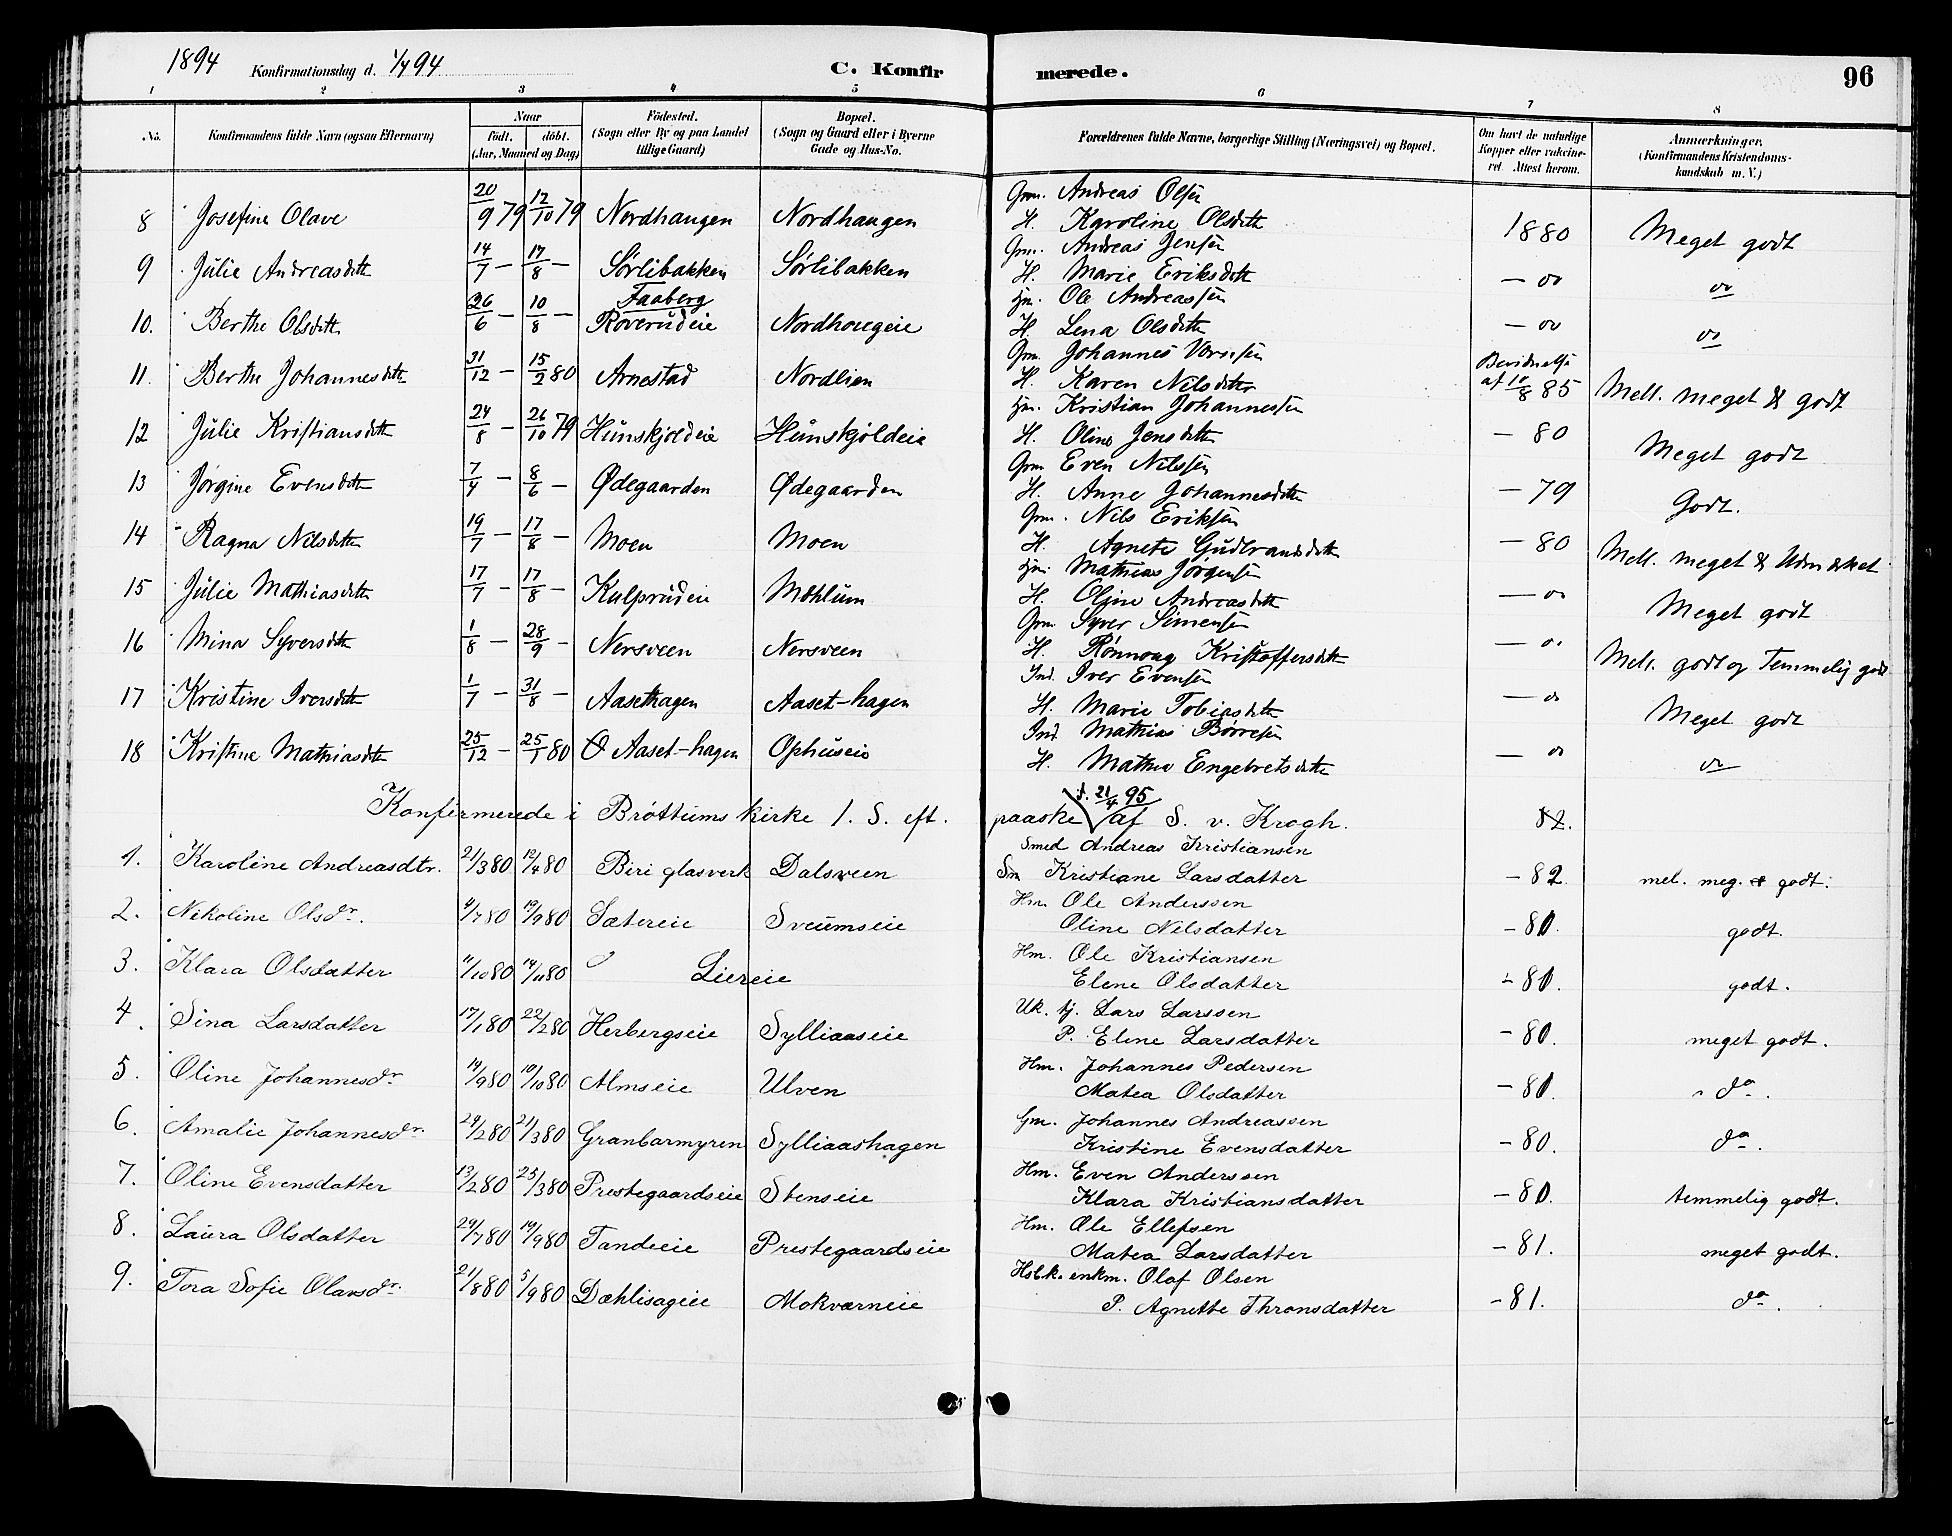 1894 Konfirmationsdag d. 1/7 94 C. Konfirmerede. 96
1 2 3 4 5 6 7 8
No. Konfirmandens fulde Navn (ogsaa Efternavn) Naar født. døbt. (Aar, Maaned og Dag) Fødested. (Sogn eller By og paa Landet tillige Gaard) Bopæl. (Sogn og Gaard eller i Byerne Gade og Hus-No. Forældrenes fulde Navne, borgerlige Stilling (Næringsvei) og Bopæl. Om havt de naturlige Kopper eller vakcineret. Attest herom. Anmærkninger. (Konfirmandens Kristendomskundskab m. V.)
8 Josefine Olave 20/9 79 12/10 79 Nordhaugen Nordhaugen Gm. Andreas Olsen
H. Karoline Olsdtt 1880 Meget godt
9 Julie Andreasdtt 14/7 — 17/8 — Sørlibakken Sørlibakken Gm. Andreas Jensen
H. Marie Eriksdtt — do do
10. Berthe Olsdtt 26/6 — 10/8 — Faaberg Roverudeie Nordhougeie Hm. Ole Andreassen
H. Lena Olsdtt — do do
11. Berthe Johannesdtt 31/12 — 15/2 80 Arnestad Nordlien Gm. Johannes
H. Karen Nilsdtt af 10/8 85 Mell. meget & godt
12 Julie Kristiansdtt 24/8 — 26/10 79 Hunskjoldeie Hunskjoldeie Hm. Kristian Johannessen
H. Oline Jensdtt — 80 Meget godt
13 Jørgine Evensdtt 7/4 — 8/6 — Ødegaarden Ødegaarden Gm Even Nilssen
H. Anne Johannesdtt — 79 Godt.
14 Ragna Nilsdtt 19/7 — 17/8 — Moen Moen Gm. Nils Eriksen
H. Agnete Gudbrandsdtt — 80 Mell. meget & Udmærket
15 Julie Mathiasdtt 17/7 — 17/8 — Kulprudeie Mæhlum Hm. Mathias Jørgensen
H. Oline Andreasdtt — do Meget godt
16 Mina Syversdtt 1/8 — 28/9 — Nersveen Nersveen Gm Syver Simensen
H. Rønnoug Kristoffersdtt — do Mell. godt og Temmelig godt
17 Kristine Iversdtt 1/7 — 31/8 — Aasethagen Aaset-hagen Ind. Iver Evensen
H. Marie Tobiasdtt — do Meget godt
18 Kristine Mathiasdtt 25/12 — 25/1 80 Aaset-hagen Ophuseie Ind. Mathias Børresen
H. Mathea Engebretsdtt — do do
Konfirmerede i Brøttums kirke 1. S. eft. paaske d. 21/4 95 af S. v. Krogh.
1. Karoline Andreasdtr. 21/3 80 12/4 80 Biri glasverk Dalsveen Smed Andreas Kristiansen
Kristiane Larsdatter — 82 mel. meg. & godt.
2. Nikoline Olsdr. 4/7 80 19/9 80 Sætereie Sveumseie Hm. Ole Anderssen
Oline Nilsdatter — 81. godt.
3. Klara Olsdatter 11/10 80 14/11 80 Liereie Hm. Ole Kristiansen
Elene Olsdatter — 81. godt.
4. Sina Larsdatter 17/1 80 22/2 80 Herbergseie Sylliaaseie Uk. tj. Lars Larssen
P. Elene Larsdatter — 80. meget godt.
5. Oline Johannesdr 14/9 80 10/10 80 Almseie Ulven Hm. Johannes Pedersen
Matea Olsdatter — 81. do.
6. Amalie Johannesdr. 29/2 80 21/3 80 Granbarmyren Sylliaashagen Gm. Johannes Andreassen
Kristine Evensdatter — 80. do.
7. Oline Evensdatter 13/2 80 25/3 80 Prestegaardseie Stenseie Hm. Even Anderssen
Klara Kristiansdatter — 81. temmelig godt.
8. Laura Olsdatter 29/7 80 19/9 80 Tandeeie Prestegaardseie Hm. Ole Ellefsen
Matea Larsdatter — 81. meget godt.
9. Tora Sofie Olavsdr. 21/8 80 5/9 80 Dæhlisageie Mokværneie Hsbk. enkm. Olaf Olsen
P. Agnette Thronsdatter — 81. do.